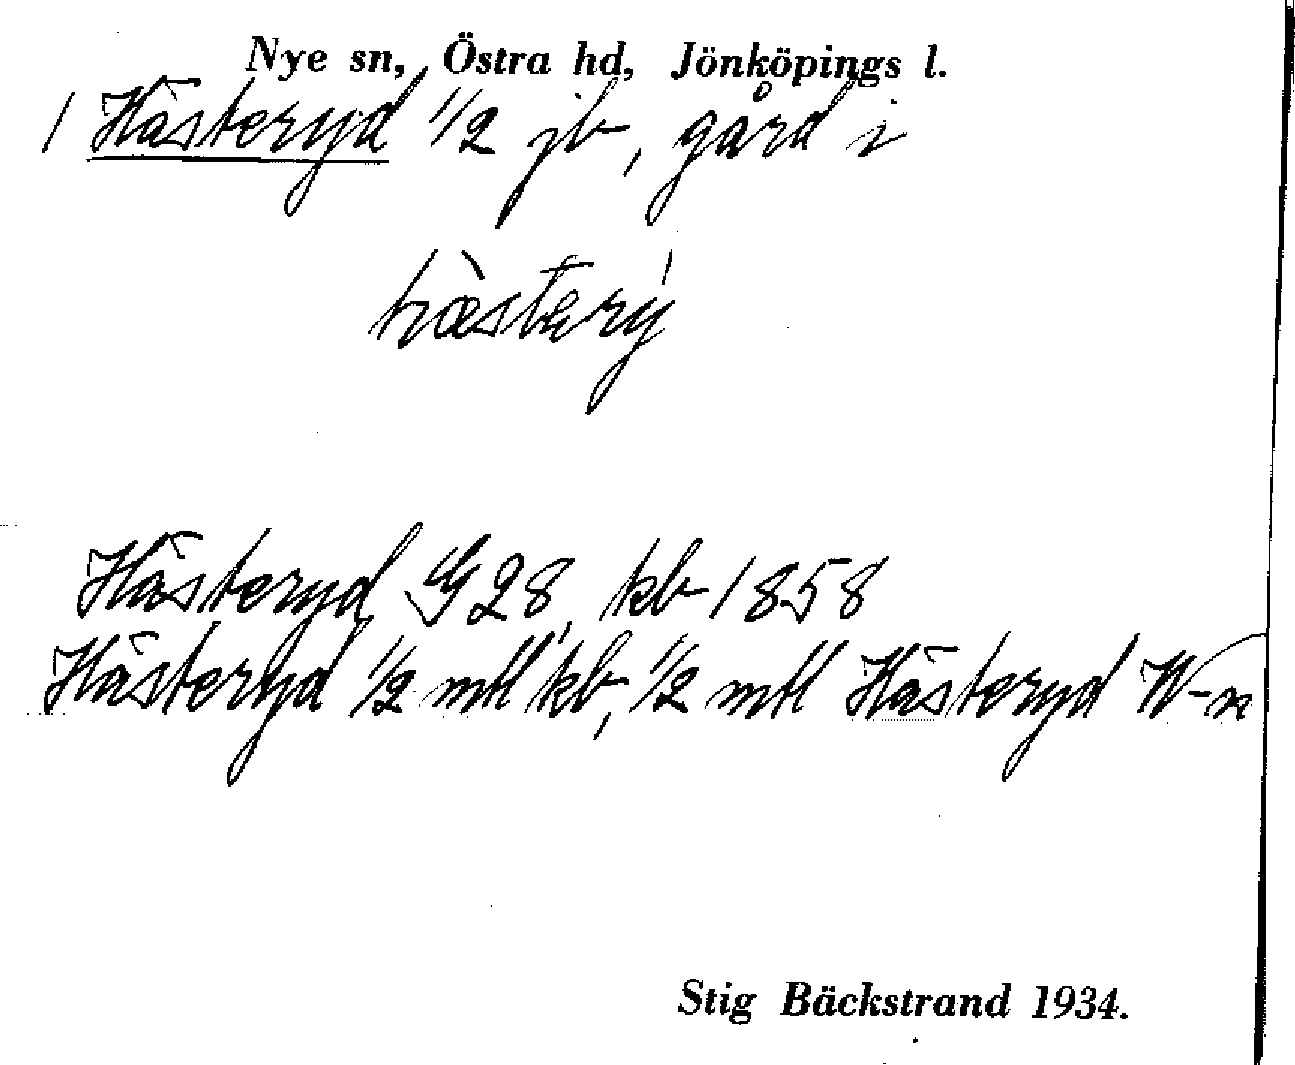 Nye sn, Östra hd, Jönköpings l.
1 Hästeryd 1/2 jb, gård i
hàsterý
Hästeryd G 28, kb 1858
Hästeryd 1/2 mtl kb, 1/2 mtl Hästeryd W-n
Stig Bäckstrand 1934.